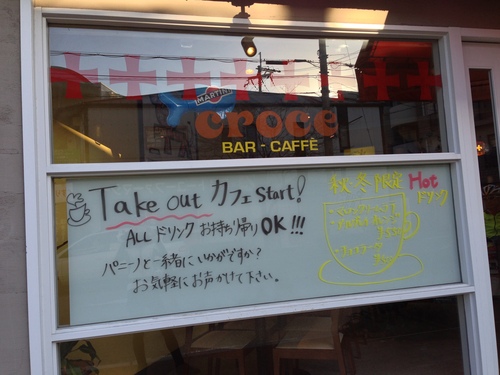 MARTINI
croce
BAR - CAFFÈ
Take out カフェ Start!
ALL ドリンク お持ち帰り OK!!!
パニーノと一緒にいかがですか?
お気軽にお声がけて下さい。
秋冬限定 Hot
ドリンク